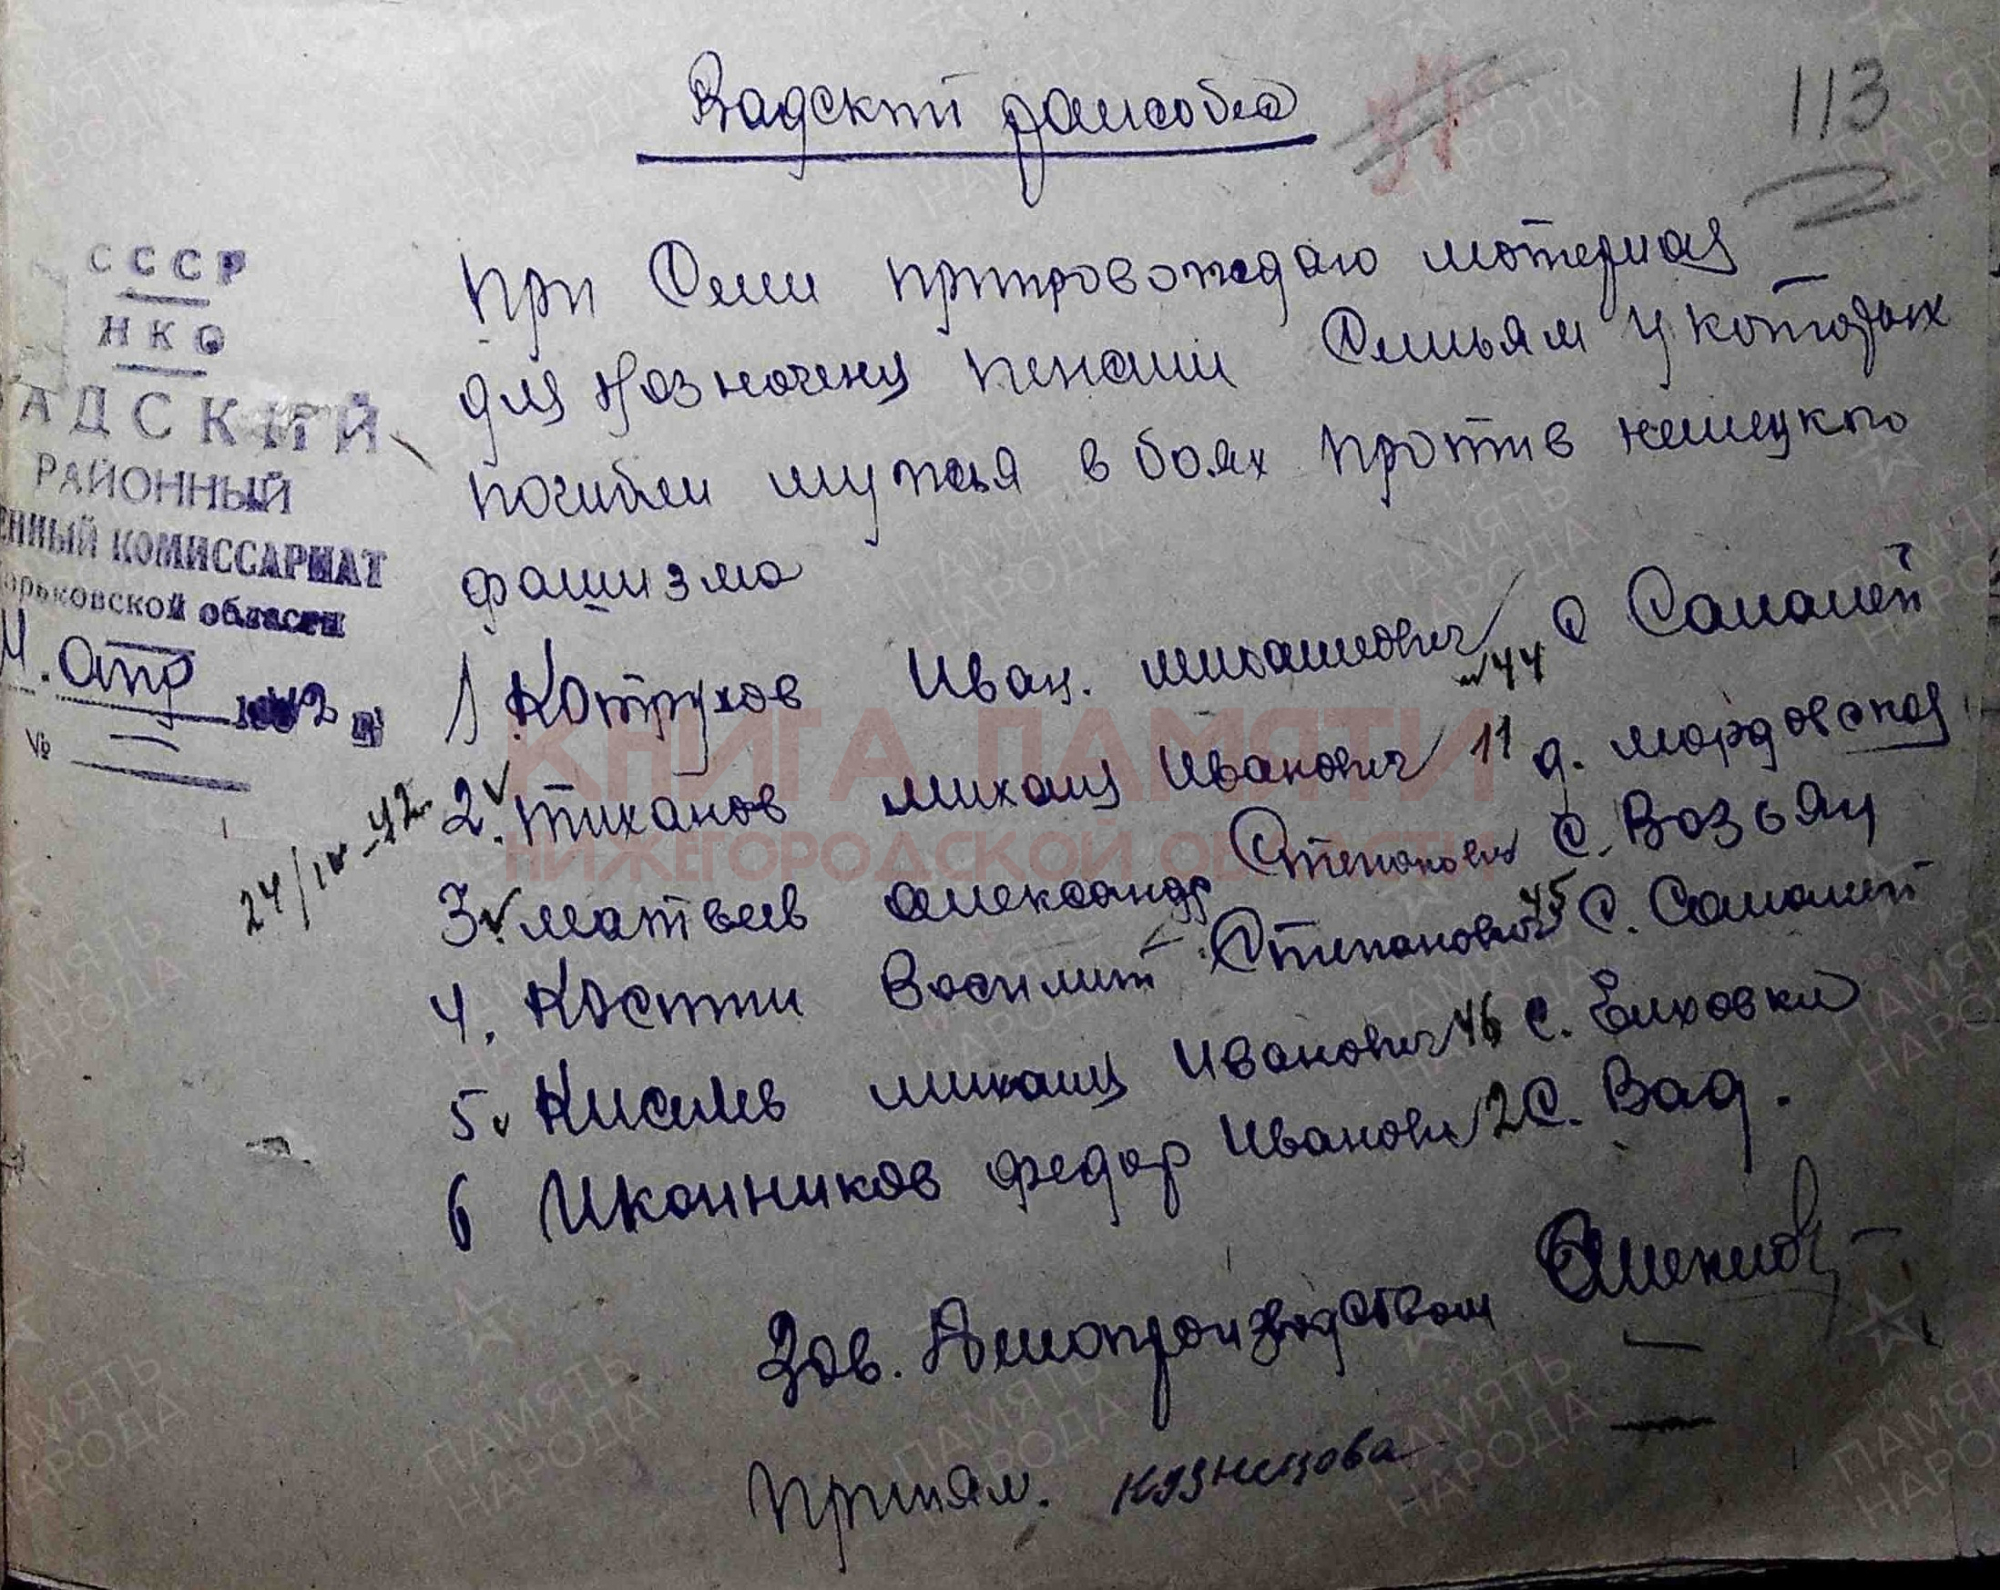 Вадский райсобез
113
СССР
НКО
АДСКИЙ
РАЙОННЫЙ
ЕННЫЙ КОМИССАРИАТ
орьковской области
апр 1942 г
№
24/IV-42
При Сем припровождаю материал
для Назначени пенсии Семьям у которых
погибли мужья в боях против немецкго
фашизма
1 Котрухов Иван. михаилович 44 С Саналей
2. тиханов михаил Иванович 11 д. мордовская
3. матвеев александр Степанович С. Возьян
4. Костин Василий Степанович 45 С. Саналей
5. Киселев михаил Иванович 46 С. Елховка
6 Иконников федор Иванович 2 С. Вад.
Зав. Делопроизводством
Принял. Кузнецова
КНИГА ПАМЯТИ
НИЖЕГОРОДСКОЙ ОБЛАСТИ
ПАМЯТЬ
НАРОДА